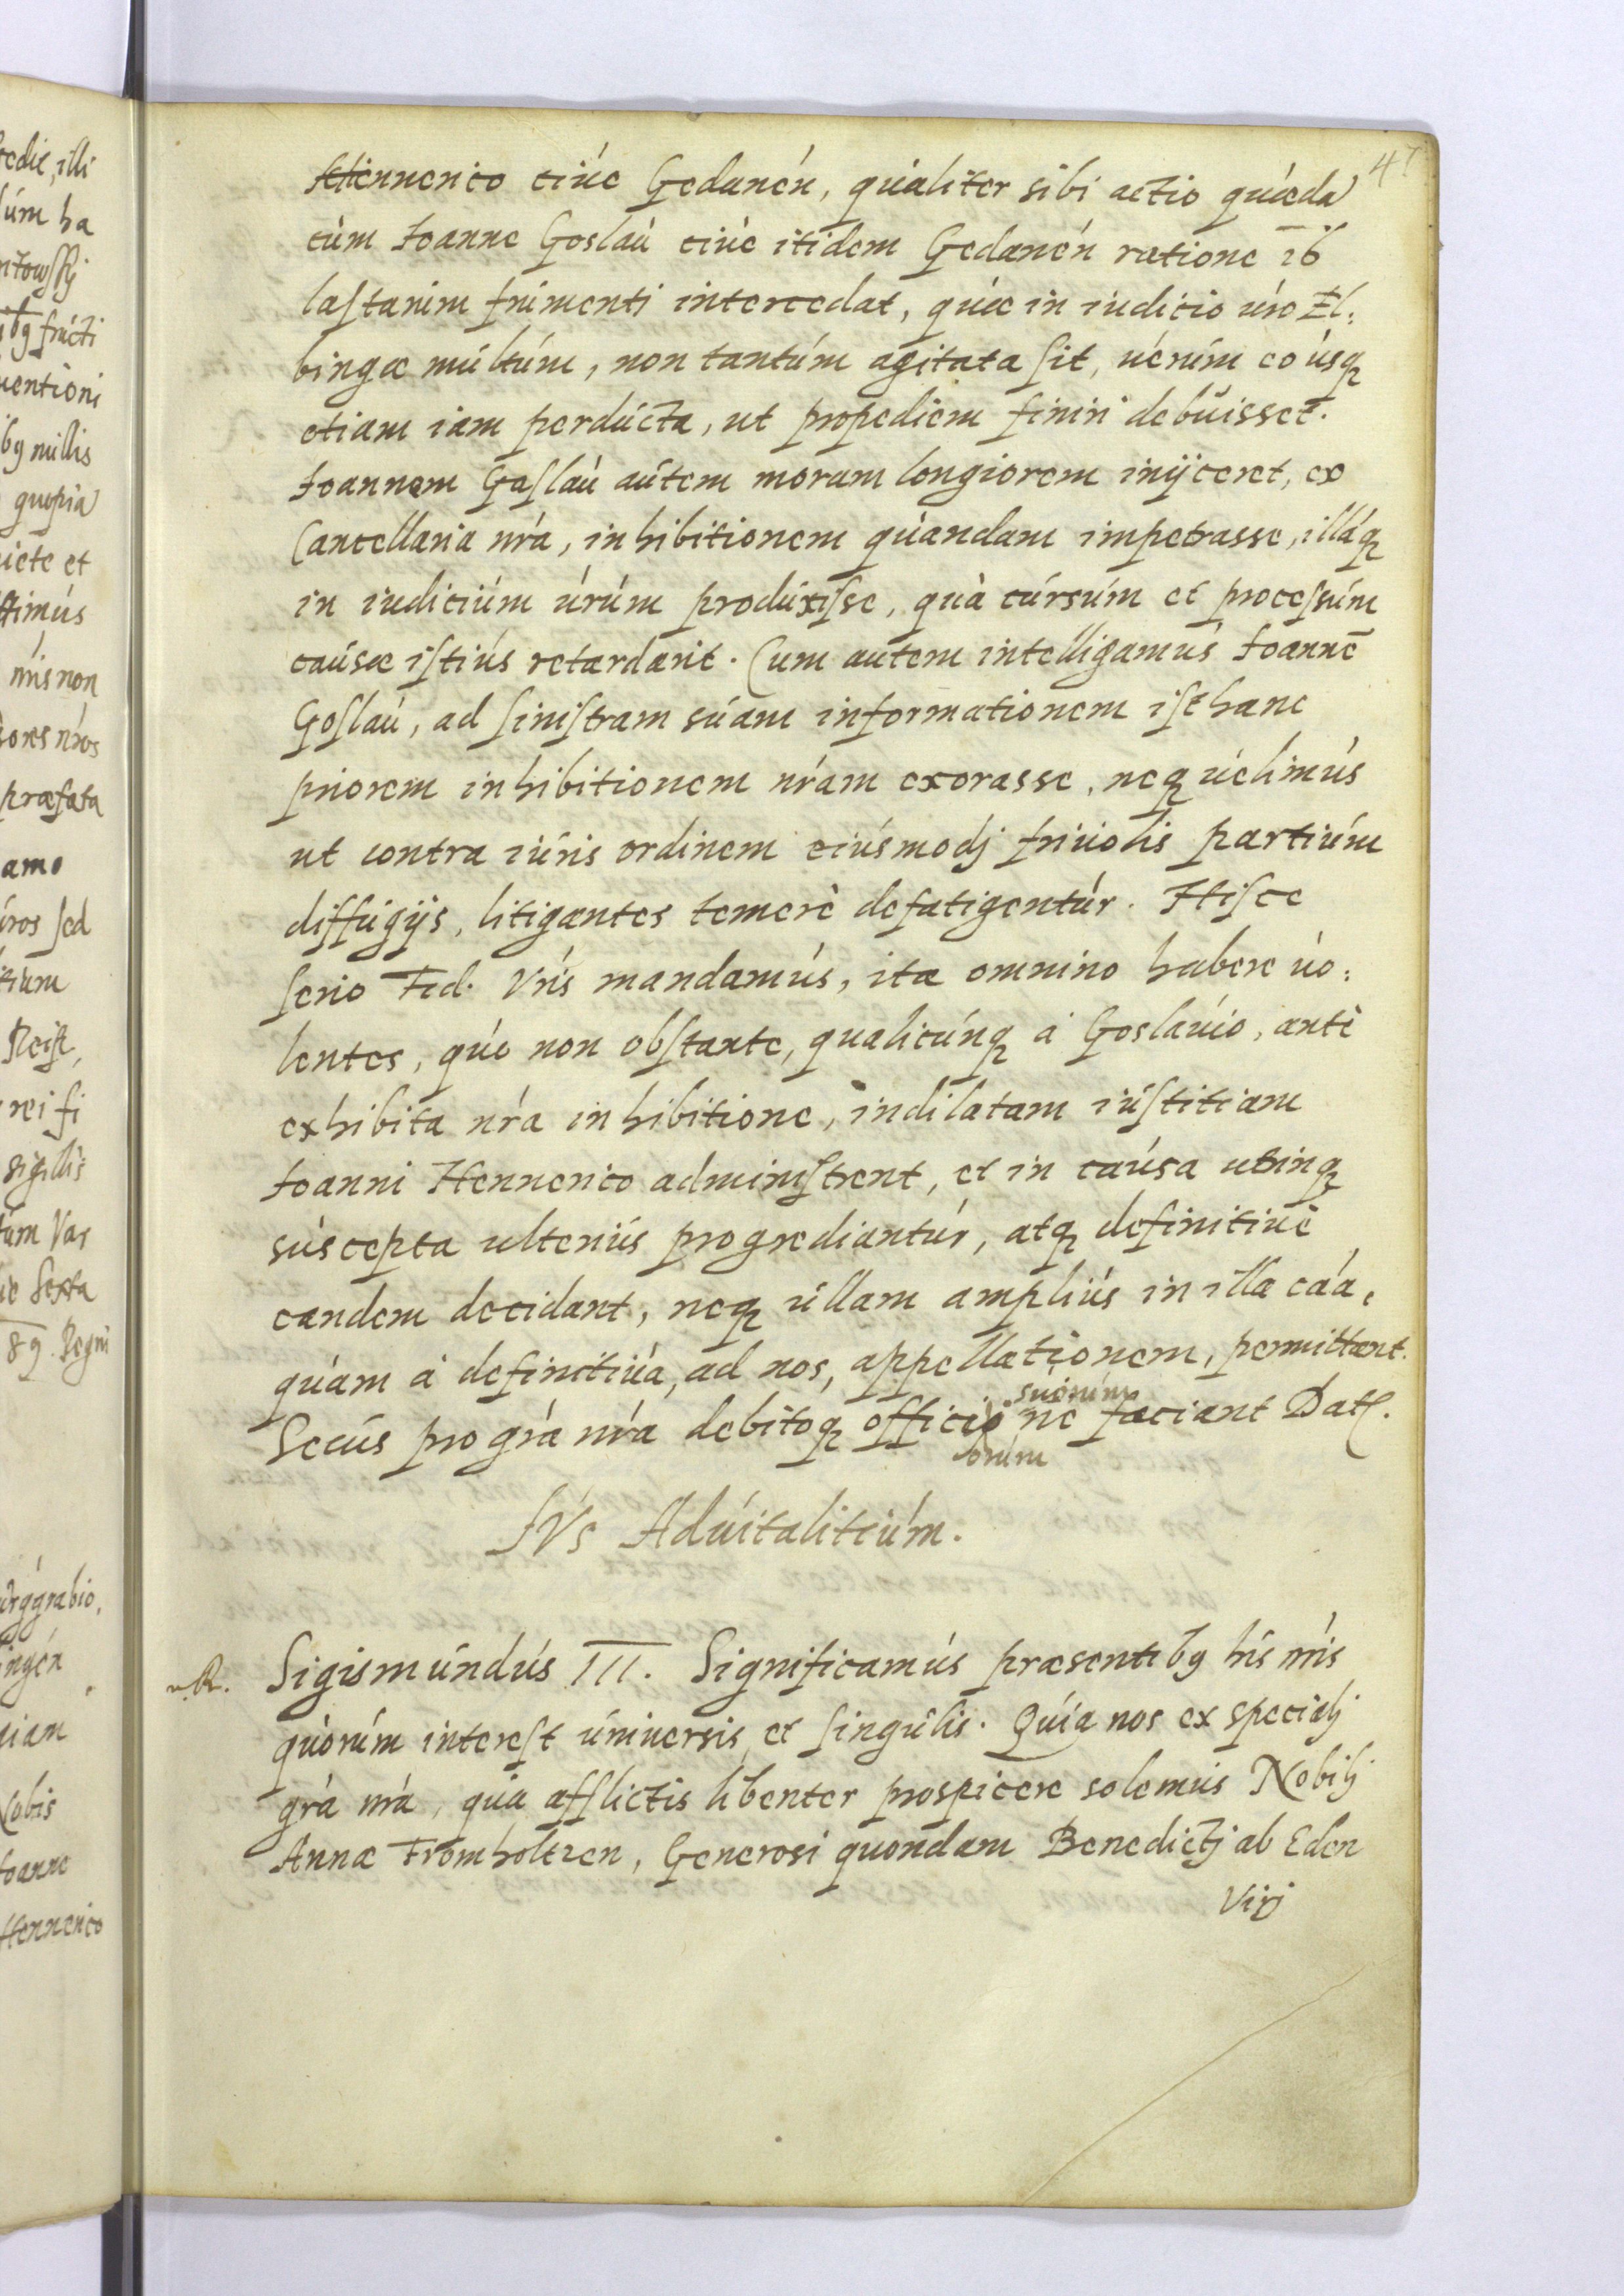 41
Hennerico ciúe Gedanén, qúaliter sibi actio qúæda
cùm Joanne Goslaù ciùe itidem Gedanén ratione 16
lastarum frúmenti intercedat, qúæ in iudicio úro El:
bingæ múltúm, non tantúm agitata sit, uérúm eo úsq
etiam iam perdúcta, ut propediem finiri debúisset.
Joannem Gaslaù aútem moram longiorem inijceret, ex
Cancellaria nrá, inhibitionem qúandam impetrasse, illáq
in iudiciúm úrúm prodúxisse, qúà cúrsúm et processúm
caúsæ istiús retardarit. Cum autem intelligamús Joannē
Goslaú, ad sinistram súam informationem isthanc
priorem inhibitionem nrám exorasse, neq úelimús
ut contra iúris ordinem eiúsmodj friúolis partiúm
diffúgijs, litigantes temerè defatigentúr. Hisce
serio Fid. Vris mandamús, ita omnino habere úo:
lentes, qúo non obstante, qualicúnq á Goslaúio, antè
exhibita nrá inhibitione, indilatam iústitiam
Joanni Hennerico administrent, et in caúsa utrinq
súscepta ulteriús progrediantúr, atq definitiuè
eandem decidant, neq úllam ampliús in illa cáa,
qúam á definitiúa, ad nos, appellationem, permittant.
Secús pro grá nrá debitoq officio suorúm ne faciant Datſ.
orum
JVs Adúitalitiúm.
R. Sigismúndús III. Significamús præsentibg hís nrís
qúorúm interest úniuersis et singúlis. Qúia nos ex specialj
grá nrá, qúa afflictis libenter prospicere solemús Nobilj
Annæ Frombolczen, Generosi quondam Benedictj ab Eden
Virj
tedie, illi
súm ha
ibg frúcti
uentioni
ibg núllis
quopia
uiete et
nris non
nrós
præfata
úros sed
rei fi
sigillis
Sexta
89. Regni
Nobis
Joanne
Hennerico